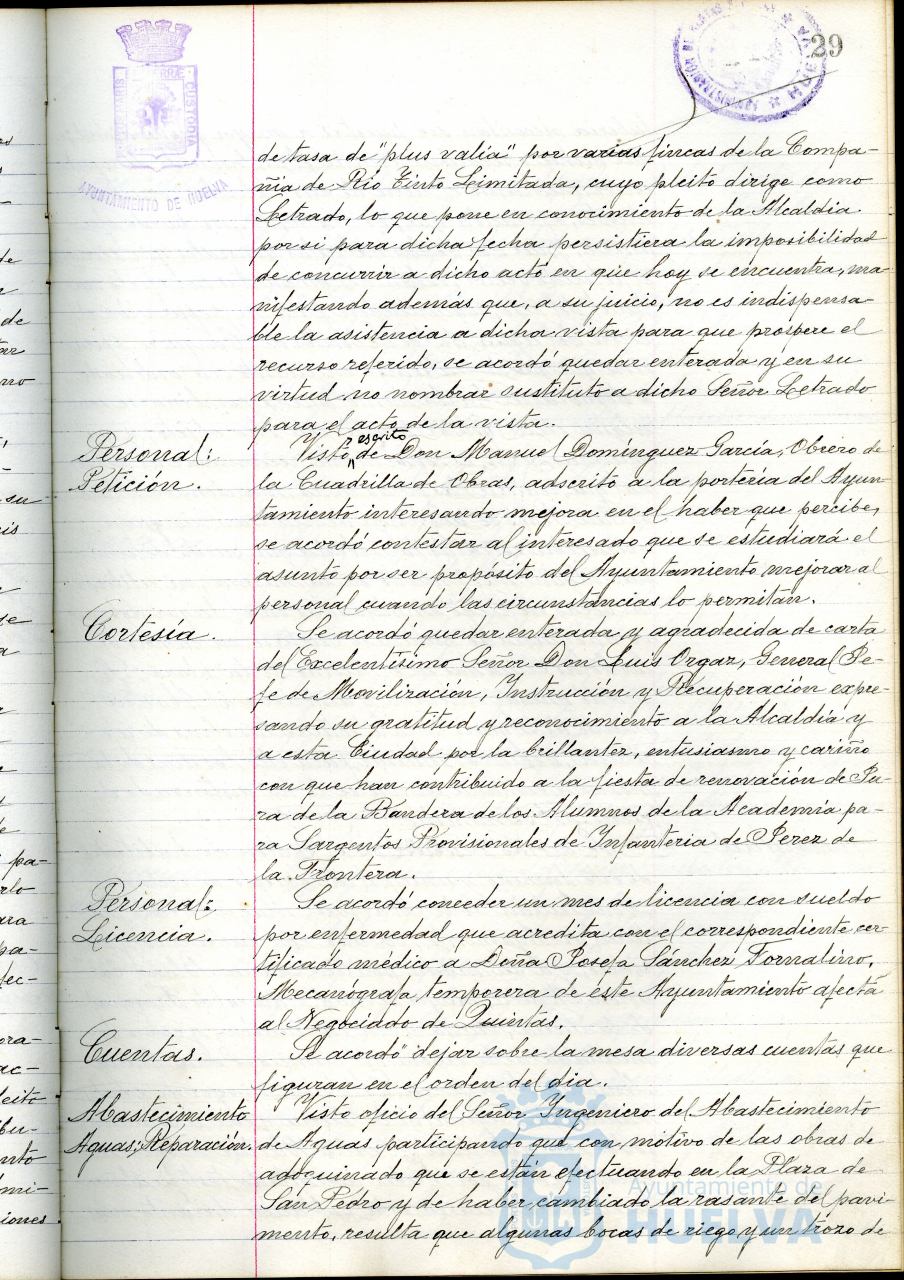 29
AYUNTAMIENTO DE HUELVA
de tasa de "plus valía" por varias fincas de la Compa-
ñia de Rio Tinto Limitada, cuyo pleito dirige como
Letrado, lo que pone en conocimiento de la Alcaldia
por si para dicha fecha persistiera la imposibilidad
de concurrir a dicho acto en que hoy se encuentra, ma-
nifestando además que, a su juicio, no es indispensa-
ble la asistencia a dicha vista para que prospere el
recurso referido, se acordó quedar enterada y en su
virtud no nombrar sustituto a dicho Señor Letrado
para el acto de la vista.
Personal:
Petición.
Visto escrito de Don Manuel Domínguez García, Obrero de
la Cuadrilla de Obras, adscrito a la portería del Ayun-
tamiento interesando mejora en el haber que percibe,
se acordó contestar al interesado que se estudiará el
asunto por ser propósito del Ayuntamiento mejorar al
personal cuando las circunstancias lo permitan.
Cortesía.
Se acordó quedar enterada y agradecida de carta
del Excelentísimo Señor Don Luis Orgaz, General Je-
fe de Movilización, Instrucción y Recuperación expre-
sando su gratitud y reconocimiento a la Alcaldía y
a esta Ciudad por la brillantez, entusiasmo y cariño
con que han contribuido a la fiesta de renovación de Ju-
ra de la Bandera de los Alumnos de la Academia pa-
ra Sargentos Provisionales de Infantería de Jerez de
la Frontera.
Personal:
Licencia.
Se acordó conceder un mes de licencia con sueldo
por enfermedad que acredita con el correspondiente cer-
tificado médico a Doña Josefa Sánchez Tornalino,
Mecanógrafa temporera de éste Ayuntamiento afecta
al Negociado de Quintas.
Cuentas.
Se acordó dejar sobre la mesa diversas cuentas que
figuran en el orden del dia.
Abastecimiento
Aguas; Reparación.
Visto oficio del Señor Ingeniero del Abastecimiento
de Aguas participando que con motivo de las obras de
adoquinado que se están efectuando en la Plaza de
San Pedro y de haber cambiado la rasante del pavi-
mento, resulta que algunas bocas de riego y un trozo de
Ayuntamiento de
HUELVA